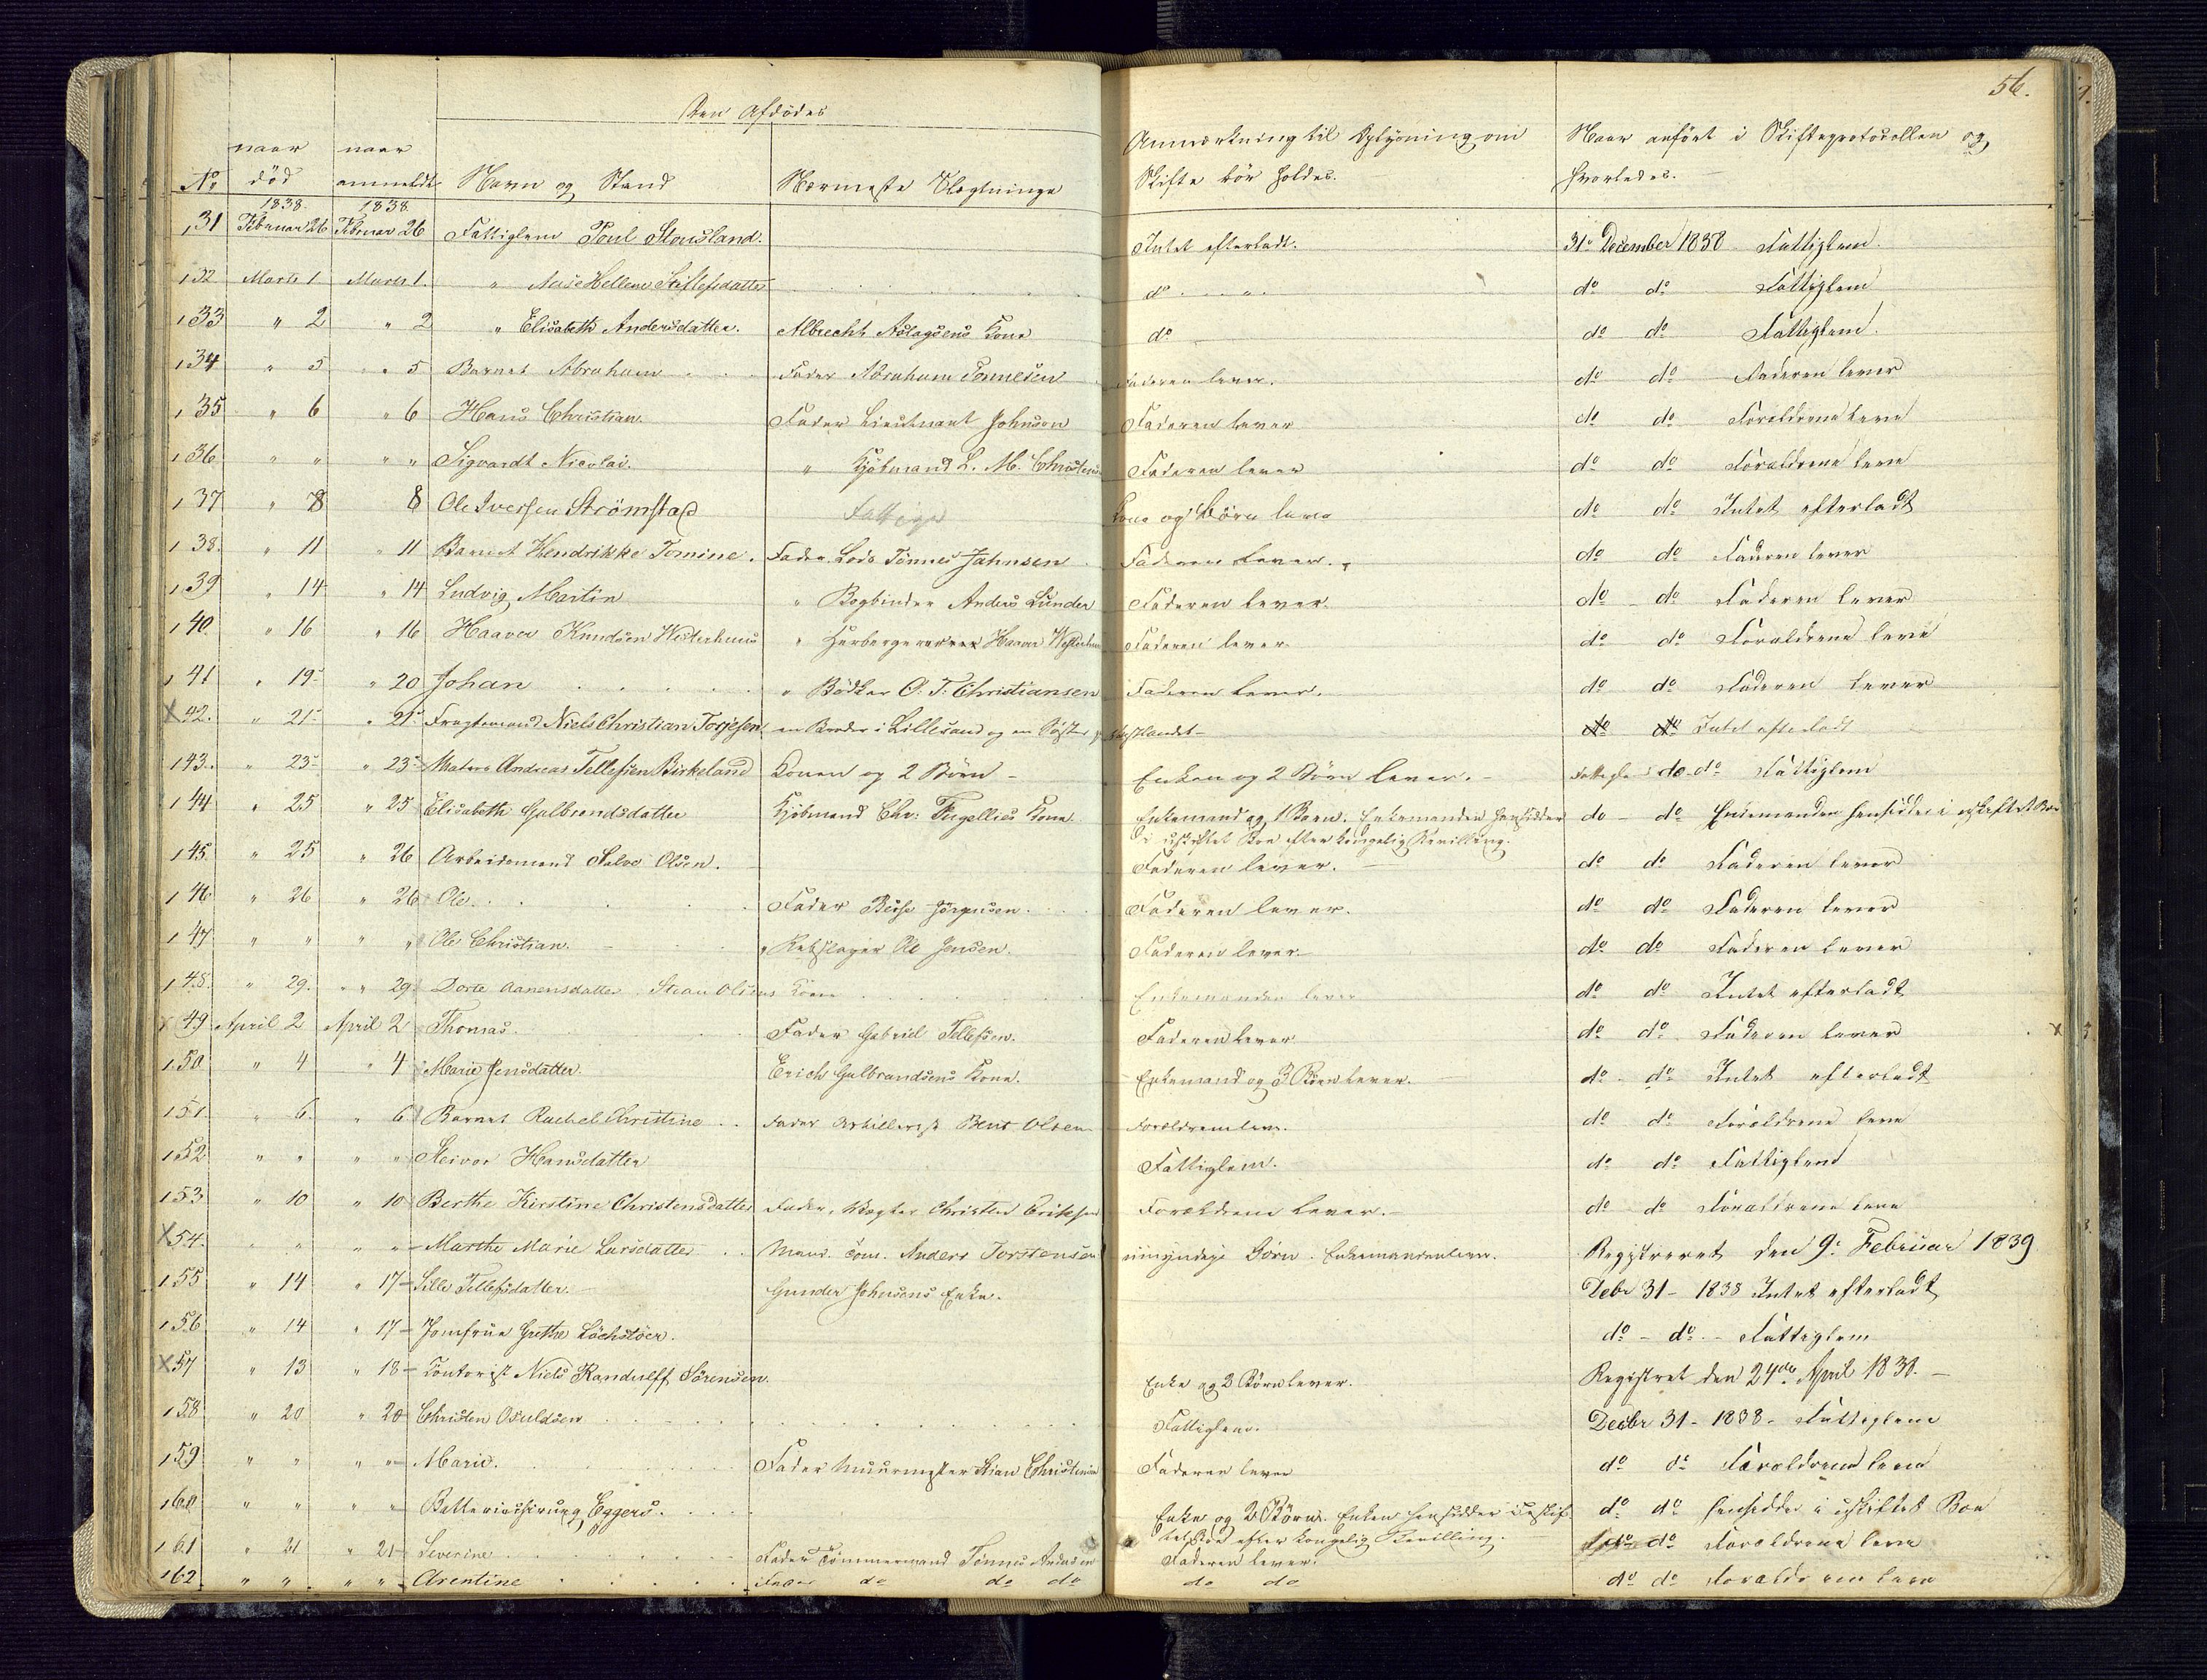 56.
Den Afdödes
No
naar död
naar anmeldt
Navn og Stand
Nærmeste Slægtninge
Anmærkning til Oplysning om Skifte bör holdes.
Naar anfört i Skifteprotocollen og hvorledes.
1838. 1838
31 Februar 26 Februar 26 Fattiglem Poul Stousland. Intet efterladt. 31te December 1838 Fattiglem
32 Marts 1 Marts 1. " Aase Hellene Stillefsdatter do " do do Fattiglem
33 " 2 " 2 " Elisabeth Andersdatter. Albrecht Aslagsens Kone do do do Fattiglem.
34 " 5 " 5 Barnet Abraham Fader Abraham Tönnesen Faderen lever. do do Faderen lever
35 " 6 " 6 Hans Christian. Fader Lieutnant Johnson Faderen lever do do Forældrene leve
36 " " " " Sigvardt Nicolai. " Kjöbmand L. M. Faderen lever do do Forældrene leve
37 " 8 8 Ole Iversen Strömstad Fattige Kone og Börn leve do do Intet efterladt
38. " 11 " 11 Barnet Hendrikke Tomine. Fader Lods Tönnes Jahnsen Faderen lever. do do Faderen lever
39 " 14 " 14 Ludvig Martin " Bogbinder Anders Lunder Faderen lever. do do Faderen lever
40. " 16 " 16 Haaver Knudsen Westerhuus " Haaver Faderen lever. do do Forældrene leve
41 " 19 " 20 Johan " Bödker O. T. Christiansen Faderen lever. do do Faderen lever
X 42. " 21 " 21 Fragtemand Niels Christian Torjesen en Broder i Lillesand og en Söster do do Intet efterladt
143. " 23 " 23 Matros Andreas Tellefsen Birkeland Konen og 2 Börn - Enken og 2 Börn lever. - do do Fattiglem
144 " 25 " 25 Elisabeth Gulbrandsdatter Kjöbmand Chr. Kone Enkemand og 1 Barn. Enkemanden hensidder
i uskiftet Boe efter kongelig Bevilling. do - do Enkemanden hensidder i uskiftet Boe
145. " 25 " 26 Arbeidsmand Salve Olsen. Faderen lever. do do Faderen lever
146 " 26 " 26 Ole. Fader Jörgensen. Faderen lever. do do Faderen lever
147 " " " " Ole Christian. " Rebslager Ole Jensen. Faderen lever. do do Faderen lever
148. " 29. " 29 Dorte Aanensdatter. Olsens Kone Enkemanden lever do do Intet efterladt
x 49 April 2 April 2 Thomas. Fader Gabriel Tellefsen. Faderen lever do do Faderen lever x
150 " 4 " 4 Marie Jensdatter. Erich Gulbrandsens Kone. Enkemand og 3 Börn lever. do do Intet efterladt
151 " 6. " 6 Barnet Rachel Christine Fader Artillerist Bent Olsen Forældrene leve. do do Forældrene leve
152 " " " " Steivor Hansdatter Fattiglem. do do Fattiglem
153 " 10 " 10 Berthe Kirstine Christensdatter Fader, Vægter Christen Eriksen Forældrene lever. - do do Forældrene leve
X 54. " " " " Marthe Marie Larsdatter Mand. Töm. Anders Torstensen umyndige Börn. Enkemanden lever. Registreret den 9de Februar 1839
155 " 14 " 17 Sille Tellefsdatter. Gunder Johnsens Enke. Debr 31 - 1838 Intet efterladt
156 " 14 " 17 Jomfrue Grethe Löchstöer. do - do - Fattiglem
X 57 " 13 " 18 Contorist Niels Randulff Sörensen. Enke og 2 Börn lever. Registret den 24de April 1838. -
158 " 20 " 20 Christen Osuldsen Fattiglem. Decbr 31 - 1838 - Fattiglem
159 " " " " Marie. Fader Muurmester Stian Christensen Faderen lever do do Forældrene leve
160 " " " " Batteriechirurg Eggers. Enke og 2 Börn. Enken hensidder i uskif-
tet Boe efter kongelig Bevilling. do do hensidder i uskiftet Boe
161 " 21 " 21 Severine Fader Tömmermand Tönnes Andersen Faderen lever. do do Forældrene leve
162. " " " " Arentine Fader do do do do do do do Forældrene leve